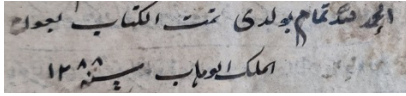 الحمد لله تمام بولدى تمت الكتاب بعون
الملك الوهاب سنه ١٢٨٨